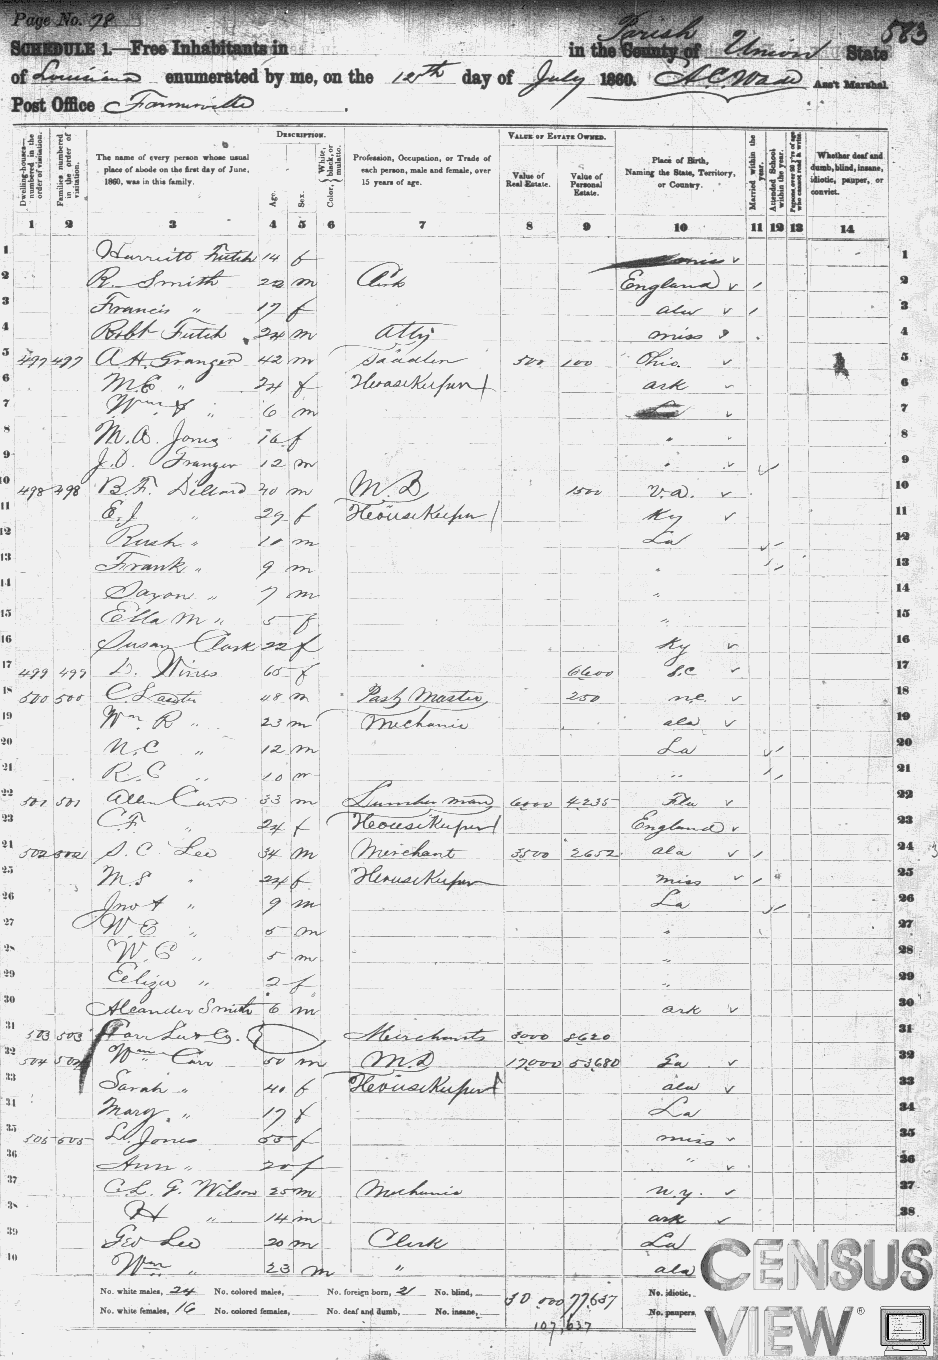 Page No. 78
583
Schedule 1.—Free Inhabitants in
in the County of Parish Union State
of Louisiana enumerated by me, on the 12th day of July 1860. A.C. Wade Ass't Marshal.
Post Office Farmerville
Dwelling-houses—numbered in the order of visitation.
Families numbered in the order of visitation.
The name of every person whose usual place of abode on the first day of June, 1860, was in this family.
Description.
Age.
Sex.
Color, White, black, or mulatto.
Profession, Occupation, or Trade of each person, male and female, over 15 years of age.
Value of Estate Owned.
Value of Real Estate.
Value of Personal Estate.
Place of Birth, Naming the State, Territory, or Country.
Married within the year.
Attended School within the year.
Persons over 20 y'rs of age who cannot read & write.
Whether deaf and dumb, blind, insane, idiotic, pauper, or convict.
1 2 3 4 5 6 7 8 9 10 11 12 13 14
1 Harriett Futch 14 f 1
2 R. Smith 22 m Clerk England v / 2
3 Francis " 17 f ala v / 3
4 Robt Futch 24 m Atty miss 4
5 497 497 A H. Granger 42 m Saddler 500 100 Ohio v 5
6 M.E " 24 f HouseKeeper ark v 6
7 Wm " 6 m La v 7
8 M. A. Jones 16 f " 8
9 J.D. Granger 12 m " v 9
10 498 498 B.F. Dillard 40 m M.D 1500 V.a. v 10
11 E.J " 29 f HouseKeeper Ky v 11
12 Rush " 10 m La 12
13 Frank " 9 m " 13
14 Saxon " 7 m " 14
15 Ella M " 5 f " 15
16 Susan Clark 22 f Ky v 16
17 499 499 D. Wines 65 f 6600 S.C v 17
18 500 500 C 48 m Post Master 250 n.c. v 18
19 Wm R " 23 m Mechanic ala v 19
20 N.C " 12 m La 20
21 R.C " 10 m " 21
22 501 501 Allen Carr 33 m Lumber man 6000 4235 Fla v 22
23 C.F. " 24 f HouseKeeper England v 23
24 502 502 S.C Lee 34 m Merchant 3500 2652 ala v / 24
25 M.S " 24 f HouseKeeper miss v / 25
26 Jno " 9 m La 26
27 W.E " 5 m " 27
28 W.C " 5 m " 28
29 Eeliza " 2 f " 29
30 Aleander Smith 6 m ark v 30
31 503 503 Carr Lee & Co. Merchants 3000 8620 31
32 504 504 Wm Carr 50 m M.D 17000 53680 Ga v 32
33 Sarah " 40 f HouseKeeper ala v 33
34 Mary " 17 f La 34
35 505 505 L. Jones 55 f miss v 35
36 Ann " 20 f " v 36
37 C.L. G. Wilson 25 m Mechanic n.y. v 37
38 H " 14 m ark v 38
39 Geo Lee 20 m Clerk La
40 Wm " 23 m " ala
No. white males, 24 No. colored males, No. foreign born, 2 No. blind, 30 000 77,637 No. idiotic,
No. white females, 16 No. colored females, No. deaf and dumb, No. insane, No. paupers,
107,637
CENSUS VIEW®